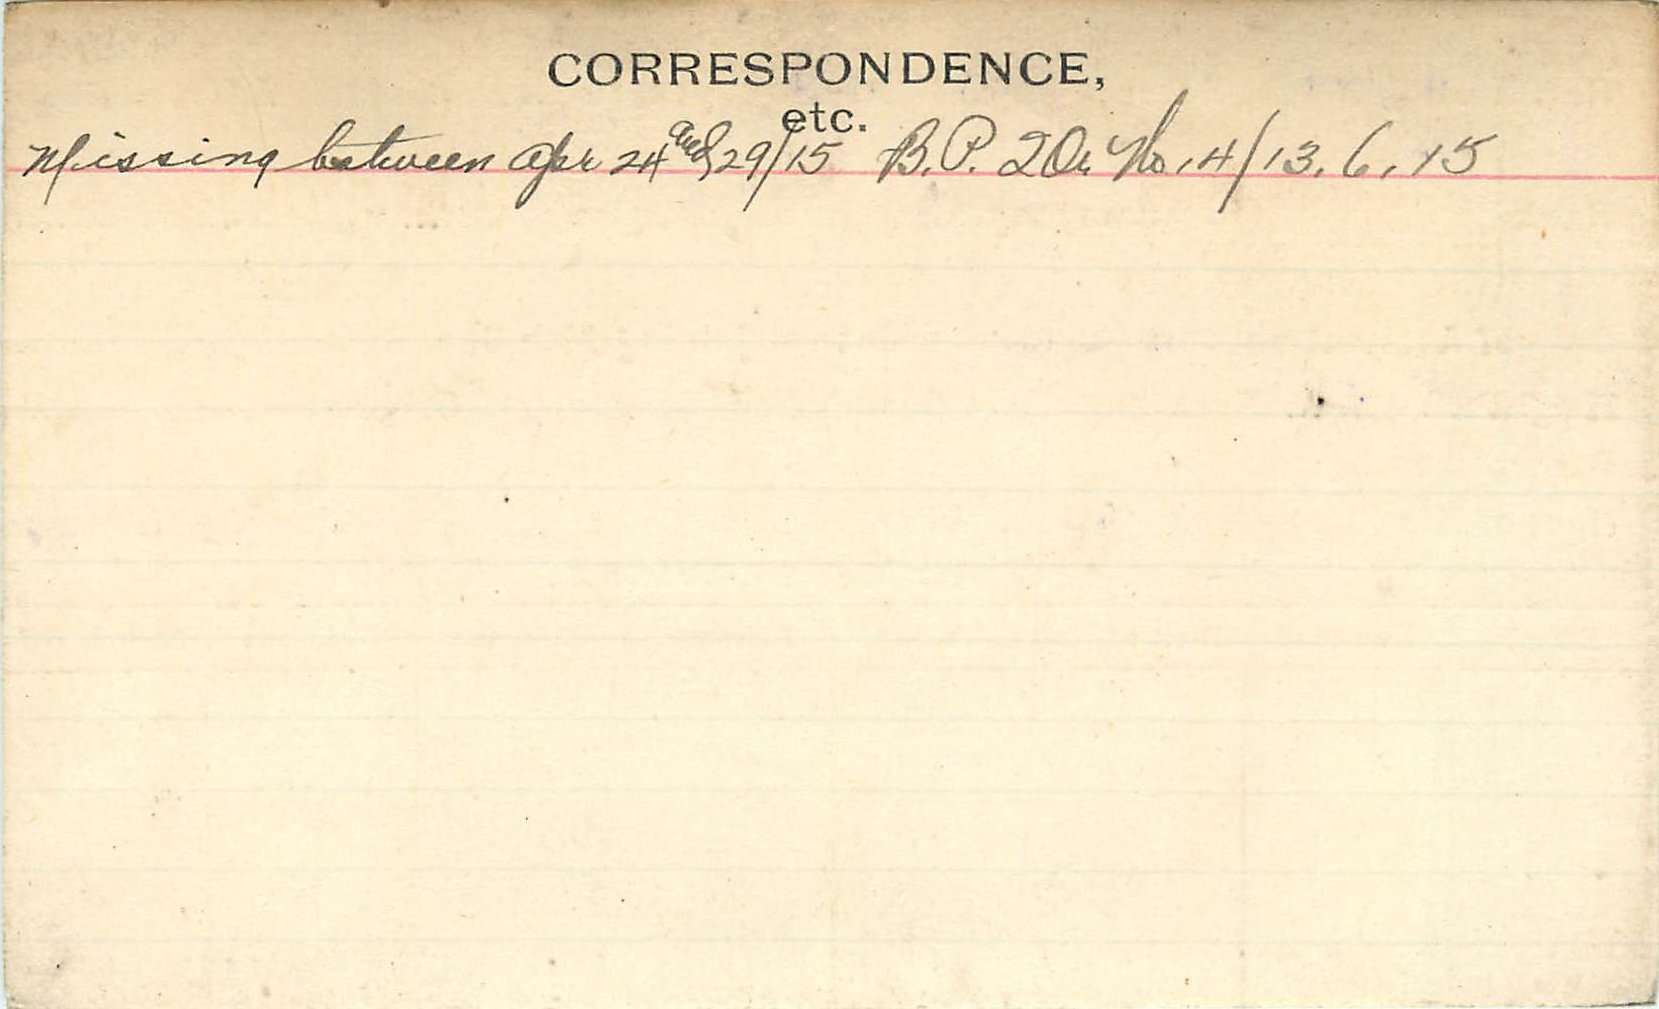 CORRESPONDENCE,
etc.
Missing between Apr 24 and 29/15 B.P. 2 Or No. 14/13.6.15